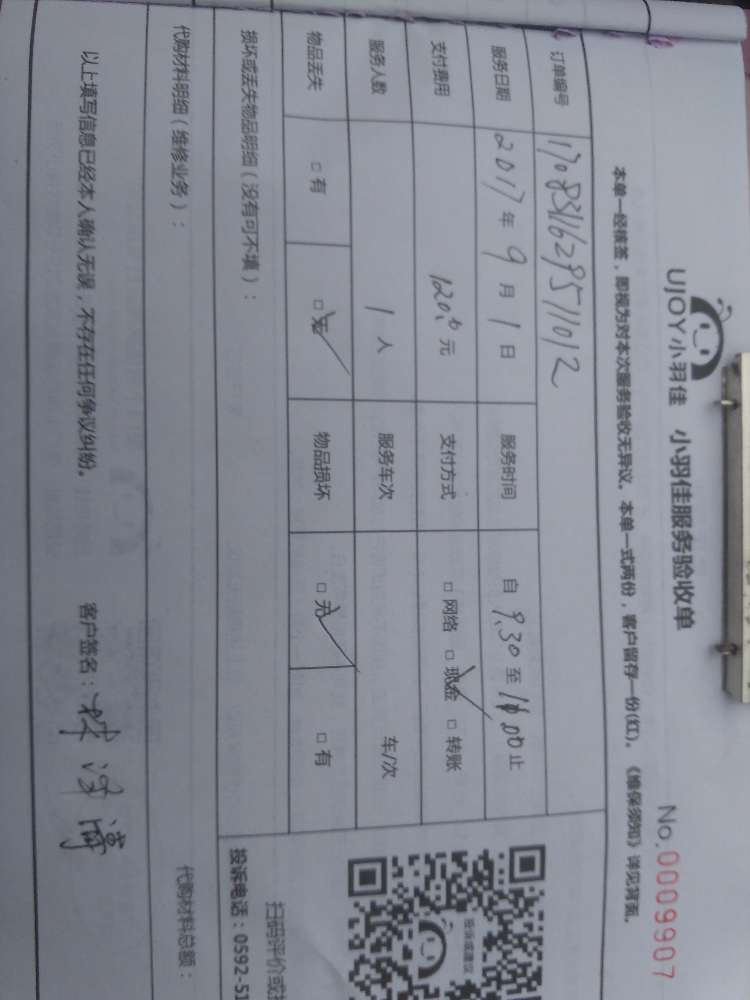 UJOY小羽佳 小羽佳服务验收单
No.0009907
本单一经核签，即视为对本次服务验收无异议。本单一式两份，客户留存一份(红)。《维保须知》详见背面。
订单编号 170831162951012
服务日期 2017年9月1日 服务时间 自9.30至11.00止
支付费用 120.0元 支付方式 □网络 □现金 □转账
服务人数 1人 服务车次 车/次
物品丢失 □有 □无 物品损坏 □无 □有
损坏或丢失物品明细（没有可不填）：
投诉或建议
扫码评价或
投诉电话：0592-51
代购材料明细（维修业务）： 代购材料总额：
以上填写信息已经本人确认无误，不存在任何争议纠纷。 客户签名：